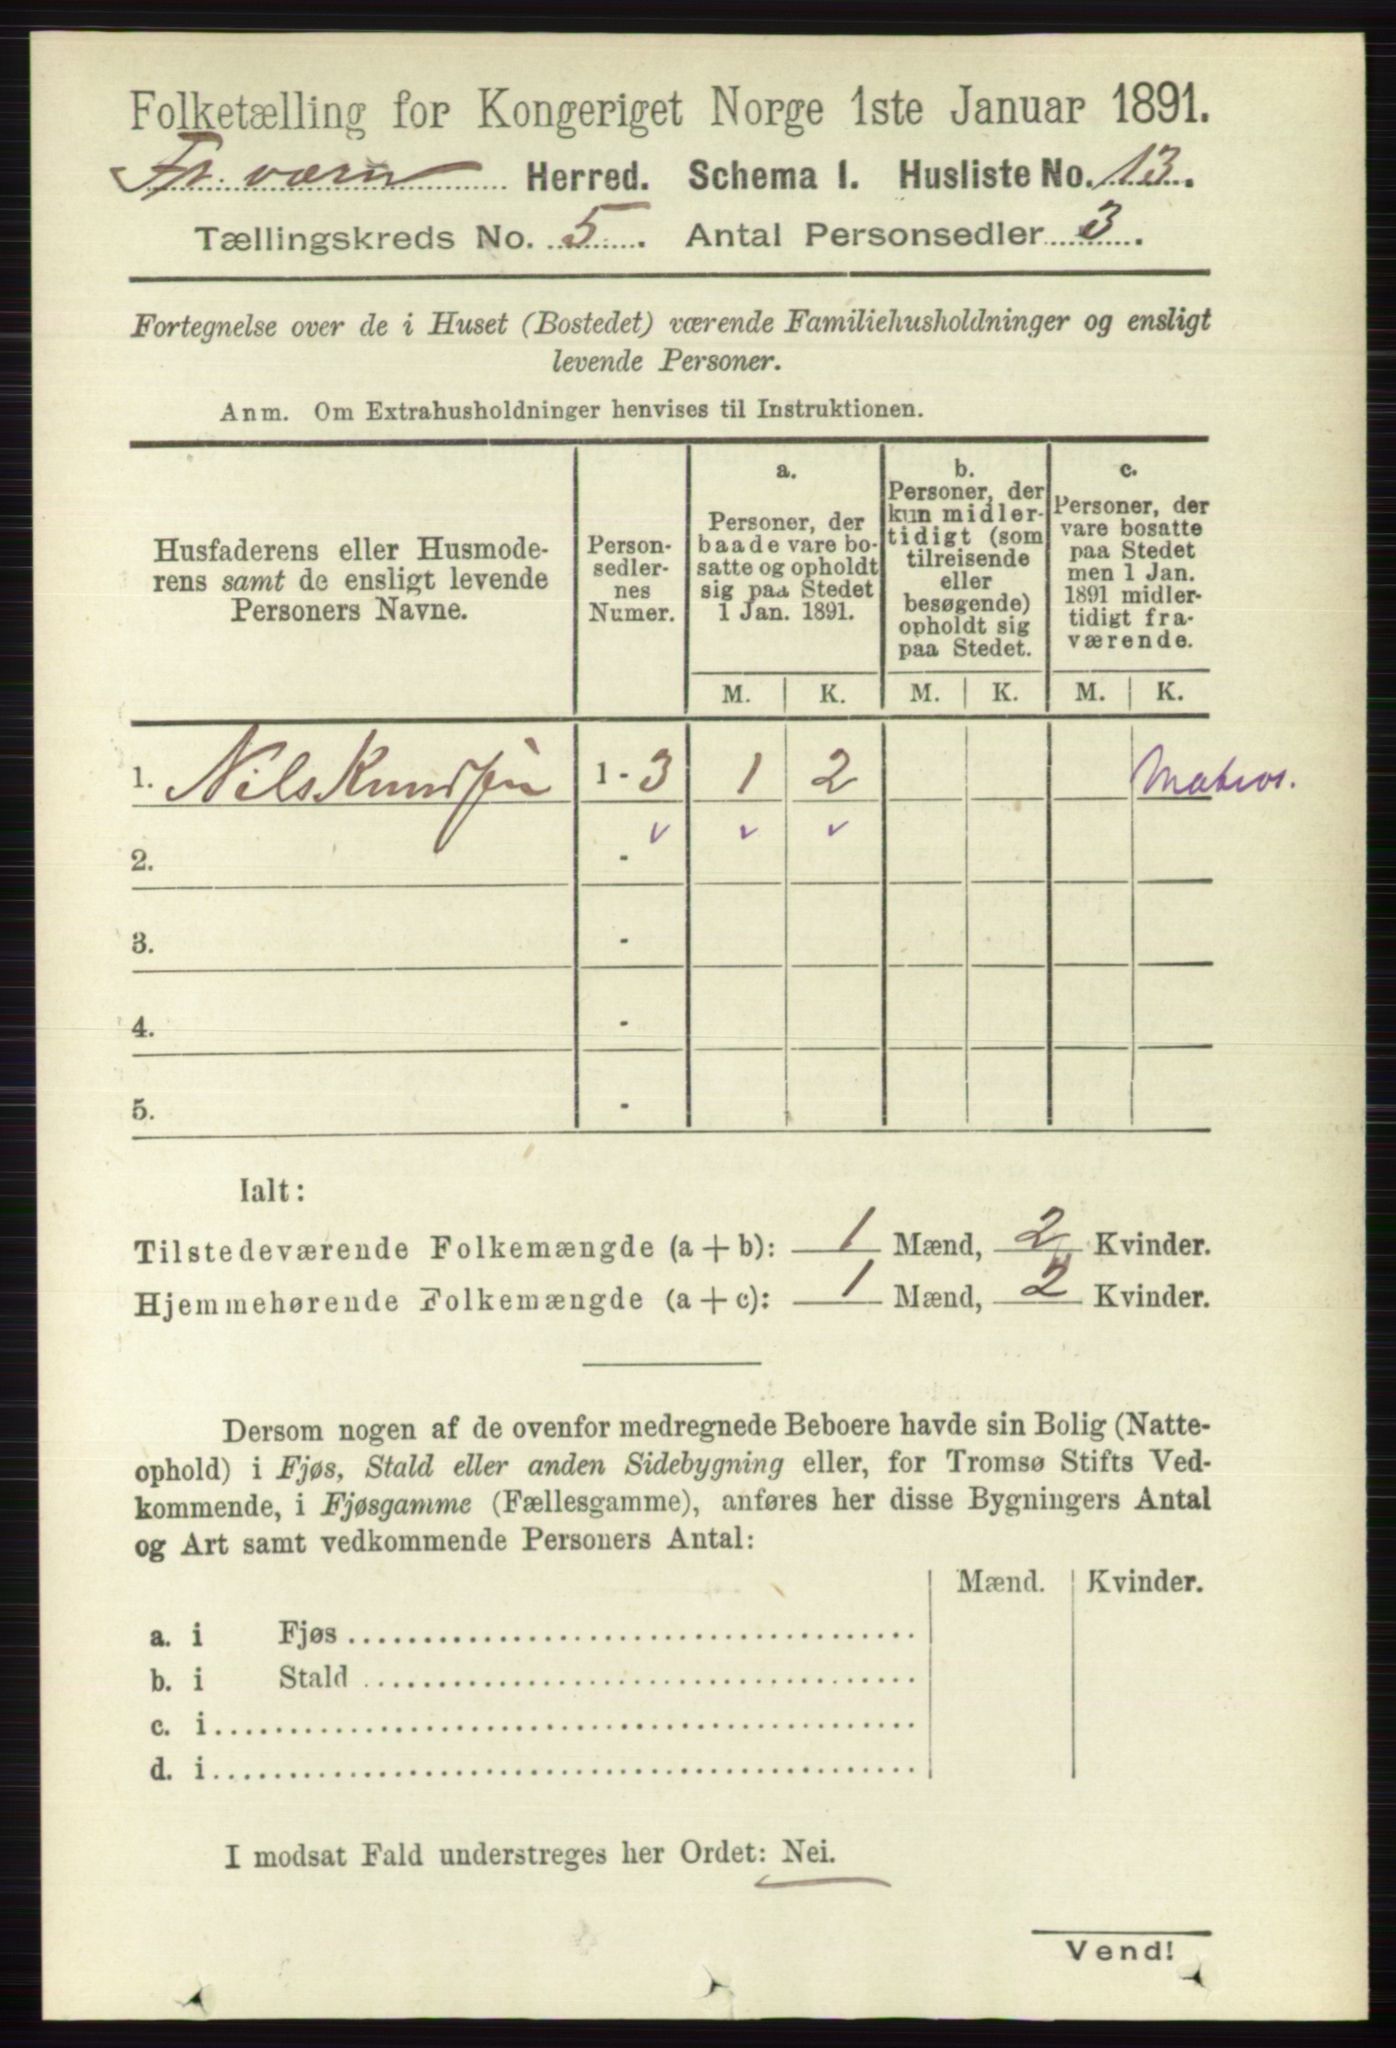 Folketælling for Kongeriget Norge 1ste Januar 1891.
Fr. værn Herred. Schema I. Husliste No. 13.
Tællingskreds No. 5. Antal Personsedler 3.
Fortegnelse over de i Huset (Bostedet) værende Familiehusholdninger og ensligt
levende Personer.
Anm. Om Extrahusholdninger henvises til Instruktionen.
Husfaderens eller Husmode-
rens samt de ensligt levende
Personers Navne.
Person-
sedler-
nes
Numer.
a.
Personer, der
baade vare bo-
satte og opholdt
sig paa Stedet
1 Jan. 1891.
b.
Personer, der
kun midler-
tidigt (som
tilreisende
eller
besøgende)
opholdt sig
paa Stedet.
c.
Personer, der
vare bosatte
paa Stedet
men 1 Jan.
1891 midler-
tidigt fra-
værende.
M. K. M. K. M. K.
1. Nils Knudsen 1 - 3 1 2 Matros.
2. -
3. -
4. -
5. -
Ialt:
Tilstedeværende Folkemængde (a + b): 1 Mænd, 2 Kvinder.
Hjemmehørende Folkemængde (a + c): 1 Mænd, 2 Kvinder.
Dersom nogen af de ovenfor medregnede Beboere havde sin Bolig (Natte-
ophold) i Fjøs, Stald eller anden Sidebygning eller, for Tromsø Stifts Ved-
kommende, i Fjøsgamme (Fællesgamme), anføres her disse Bygningers Antal
og Art samt vedkommende Personers Antal:
Mænd. Kvinder.
a. i Fjøs
b. i Stald
c. i
d. i
I modsat Fald understreges her Ordet: Nei.
Vend!